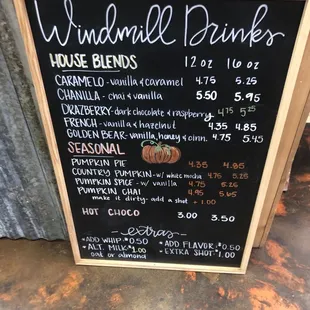 Windmill Drinks
HOUSE BLENDS 12 oz 16 oz
CARAMELO - vanilla & caramel 4.75 5.25
CHANILLA - chai & vanilla 5.50 5.95
DRAZBERRY - dark chocolate & raspberry 4.75 5.25
FRENCH - vanilla & hazelnut 4.35 4.85
GOLDEN BEAR - vanilla, honey & cinn. 4.75 5.45
SEASONAL
PUMPKIN PIE 4.35 4.85
COUNTRY PUMPKIN - w/ white mocha 4.75 5.25
PUMPKIN SPICE - w/ vanilla 4.75 5.25
PUMPKIN CHAI 4.95
make it dirty - add a shot + 1.00
HOT CHOCO 3.00 3.50
extras
ADD WHIP - $0.50 ADD FLAVOR - $0.50
ALT. MILK - $1.00 EXTRA SHOT - $1.00
oat or almond